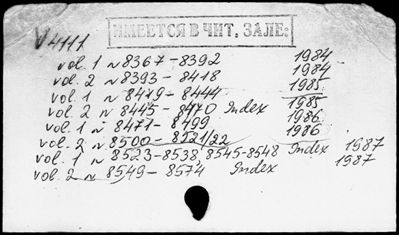 ИМЕЕТСЯ В ЧИТ. ЗАЛЕ:
V 4111
vol. 1 N 8367-8392 1984
vol. 2 N 8393-8418 1984
vol. 1 N 8419-8444 1985
vol. 2 N 8445-8470 Index 1985
vol. 1 N 8471-8499 1986
vol. 2 N 8500-8521/22 1986
vol. 1 N 8523-8538, 8545-8548 Index 1987
vol. 2 N 8549-8574 Index 1987